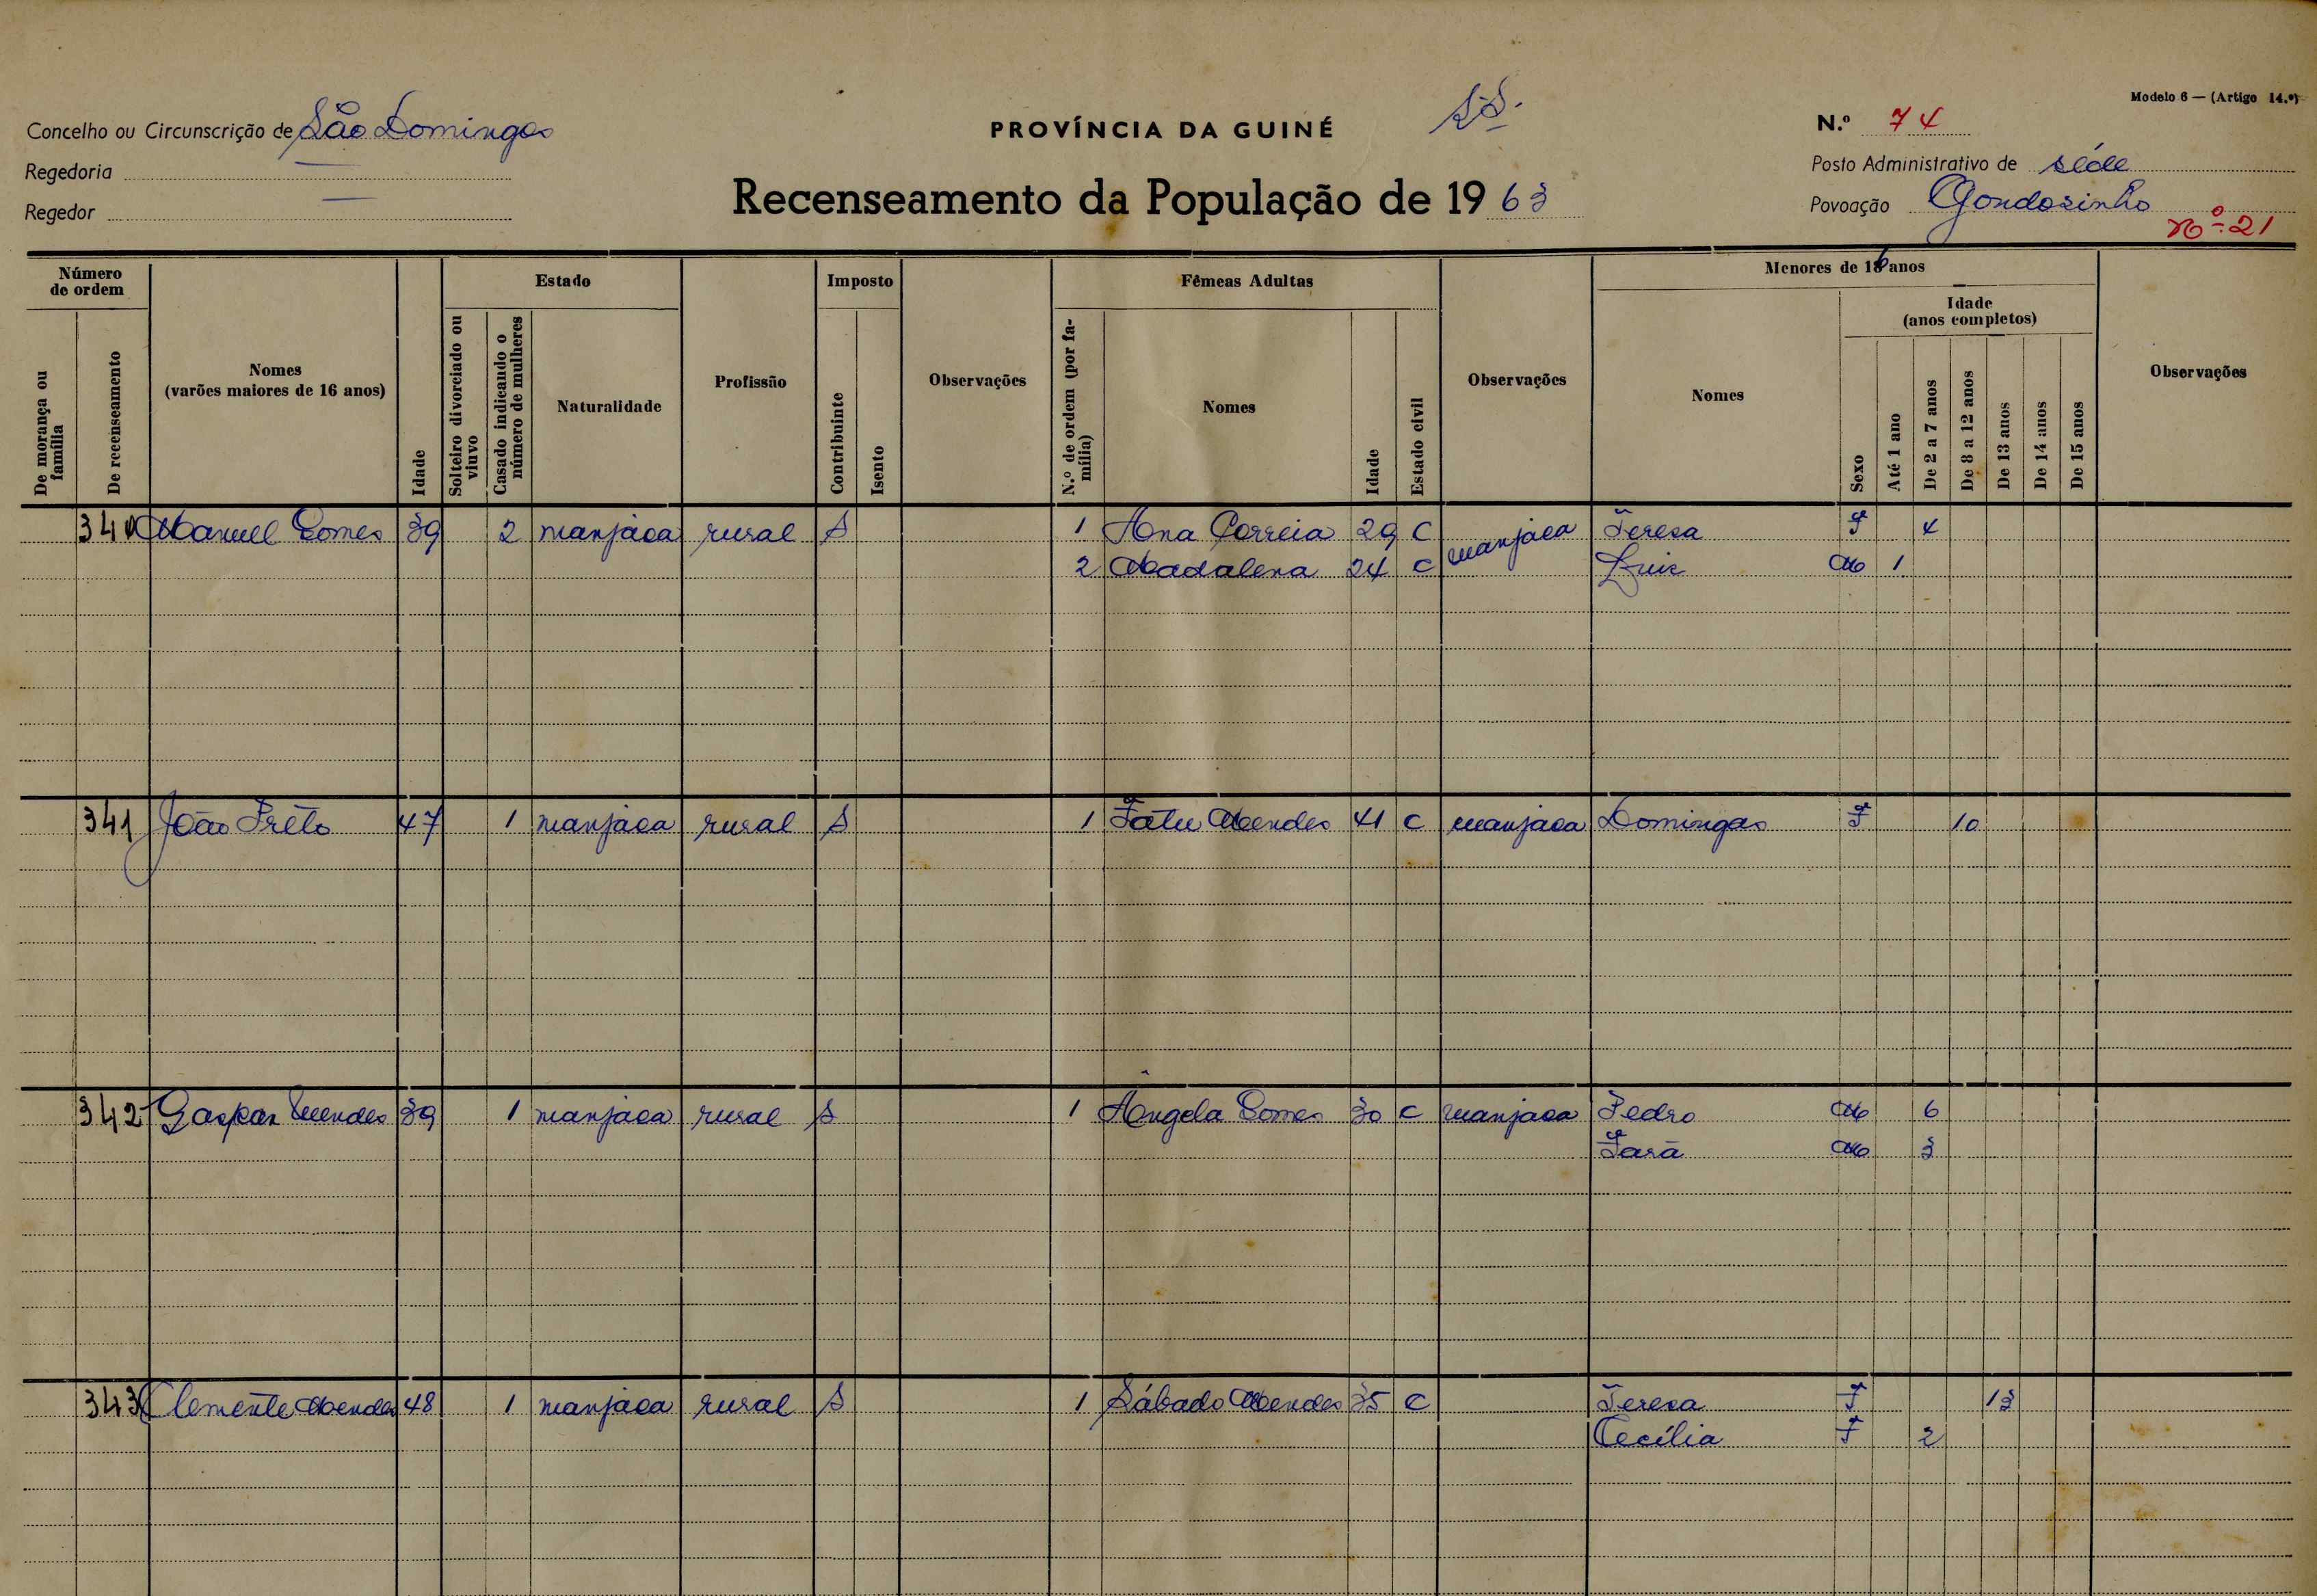 Modelo 6 — (Artigo 14.º)
Concelho ou Circunscrição de São Domingos
PROVÍNCIA DA GUINÉ
N.º 74
Regedoria —
Posto Administrativo de séde
Regedor —
Recenseamento da População de 1963
Povoação Gondosinho
Nº 21
Número de ordem
Estado
Imposto
Fêmeas Adultas
Menores de 16 anos
Idade (anos completos)
De morança ou família
De recenseamento
Nomes (varões maiores de 16 anos)
Idade
Solteiro divorciado ou viuvo
Casado indicando o número de mulheres
Naturalidade
Profissão
Contribuinte
Isento
Observações
N.º de ordem (por família)
Nomes
Idade
Estado civil
Observações
Nomes
Sexo
Até 1 ano
De 2 a 7 anos
De 8 a 12 anos
De 13 anos
De 14 anos
De 15 anos
Observações
340 Manuel Gomes 39 2 manjaca rural S 1 Ana Correia 29 C manjaca Teresa F 4
2 Madalena 24 C Luis M 1
341 João Prêto 47 1 manjaca rural S 1 Fatu Mendes 41 C manjaca Domingas F 10
342 Gaspar Mendes 39 1 manjaca rural S 1 Ângela Gomes 30 C manjaca Pedro M 6
M 3
343 Clemente Mendes 48 1 manjaca rural S 1 Sábado Mendes 35 C Teresa F 13
Cecília F 2